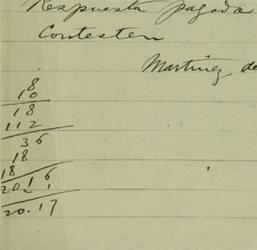 Respuesta pagada
Contesten
Martinez de
18
10
18
112
36
18
18
20.16
1
20.17